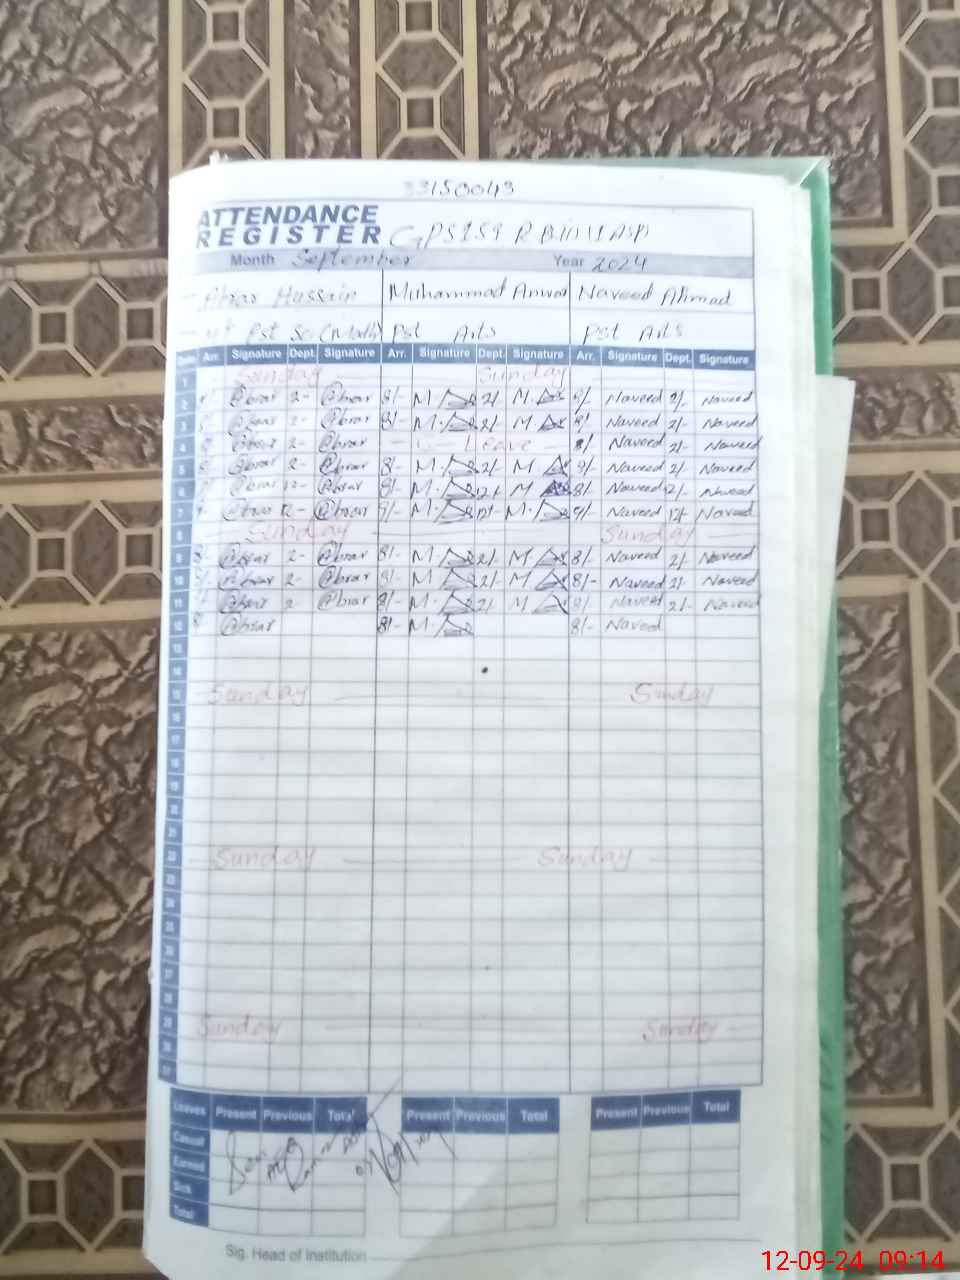 33150043
ATTENDANCE
REGISTER GPS 159 R B
Month September Year 2024
Abrar Hussain Muhammad Anwar Naveed Ahmad
Pst Sc (Math) Pst Arts Pst Arts
Date Arr. Signature Dept. Signature Arr. Signature Dept. Signature Arr. Signature Dept. Signature
1 Sunday Sunday
2 8/- @brar 2- @brar 8/- M. 2/- M. 8/- Naveed 2/- Naveed
3 8/- @brar 2- @brar 8/- M. 2/- M 8/- Naveed 2/- Naveed
4 8/- @brar 2- @brar Leave 8/- Naveed 2/- Naveed
5 8/- @brar 2- @brar 8/- M. 2/- M 8/- Naveed 2/- Naveed
6 @brar 12- @brar 8/- M. 12/- M 8/- Naveed 12/- Naveed
7 @brar 12- @brar M. 12/- M. Naveed 12/- Naveed
8 Sunday Sunday
9 8/- @brar 2- @brar 8/- M. 2/- M 8/- Naveed 2/- Naveed
10 8/- @brar 2- @brar 8/- M. 2/- M 8/- Naveed 2/- Naveed
11 @brar 2- @brar 8/- M. 2/- M 8/- Naveed 2/- Naveed
12 8/- @brar 8/- M. 8/- Naveed
13
14
15 Sunday Sunday
16
17
18
19
20
21
22 Sunday Sunday
23
24
25
26
27
28
29 Sunday Sunday
30
31
Leaves Present Previous Total Present Previous Total Present Previous Total
Casual
Earned
Sick
Total
Sig. Head of Institution
12-09-24 09:14